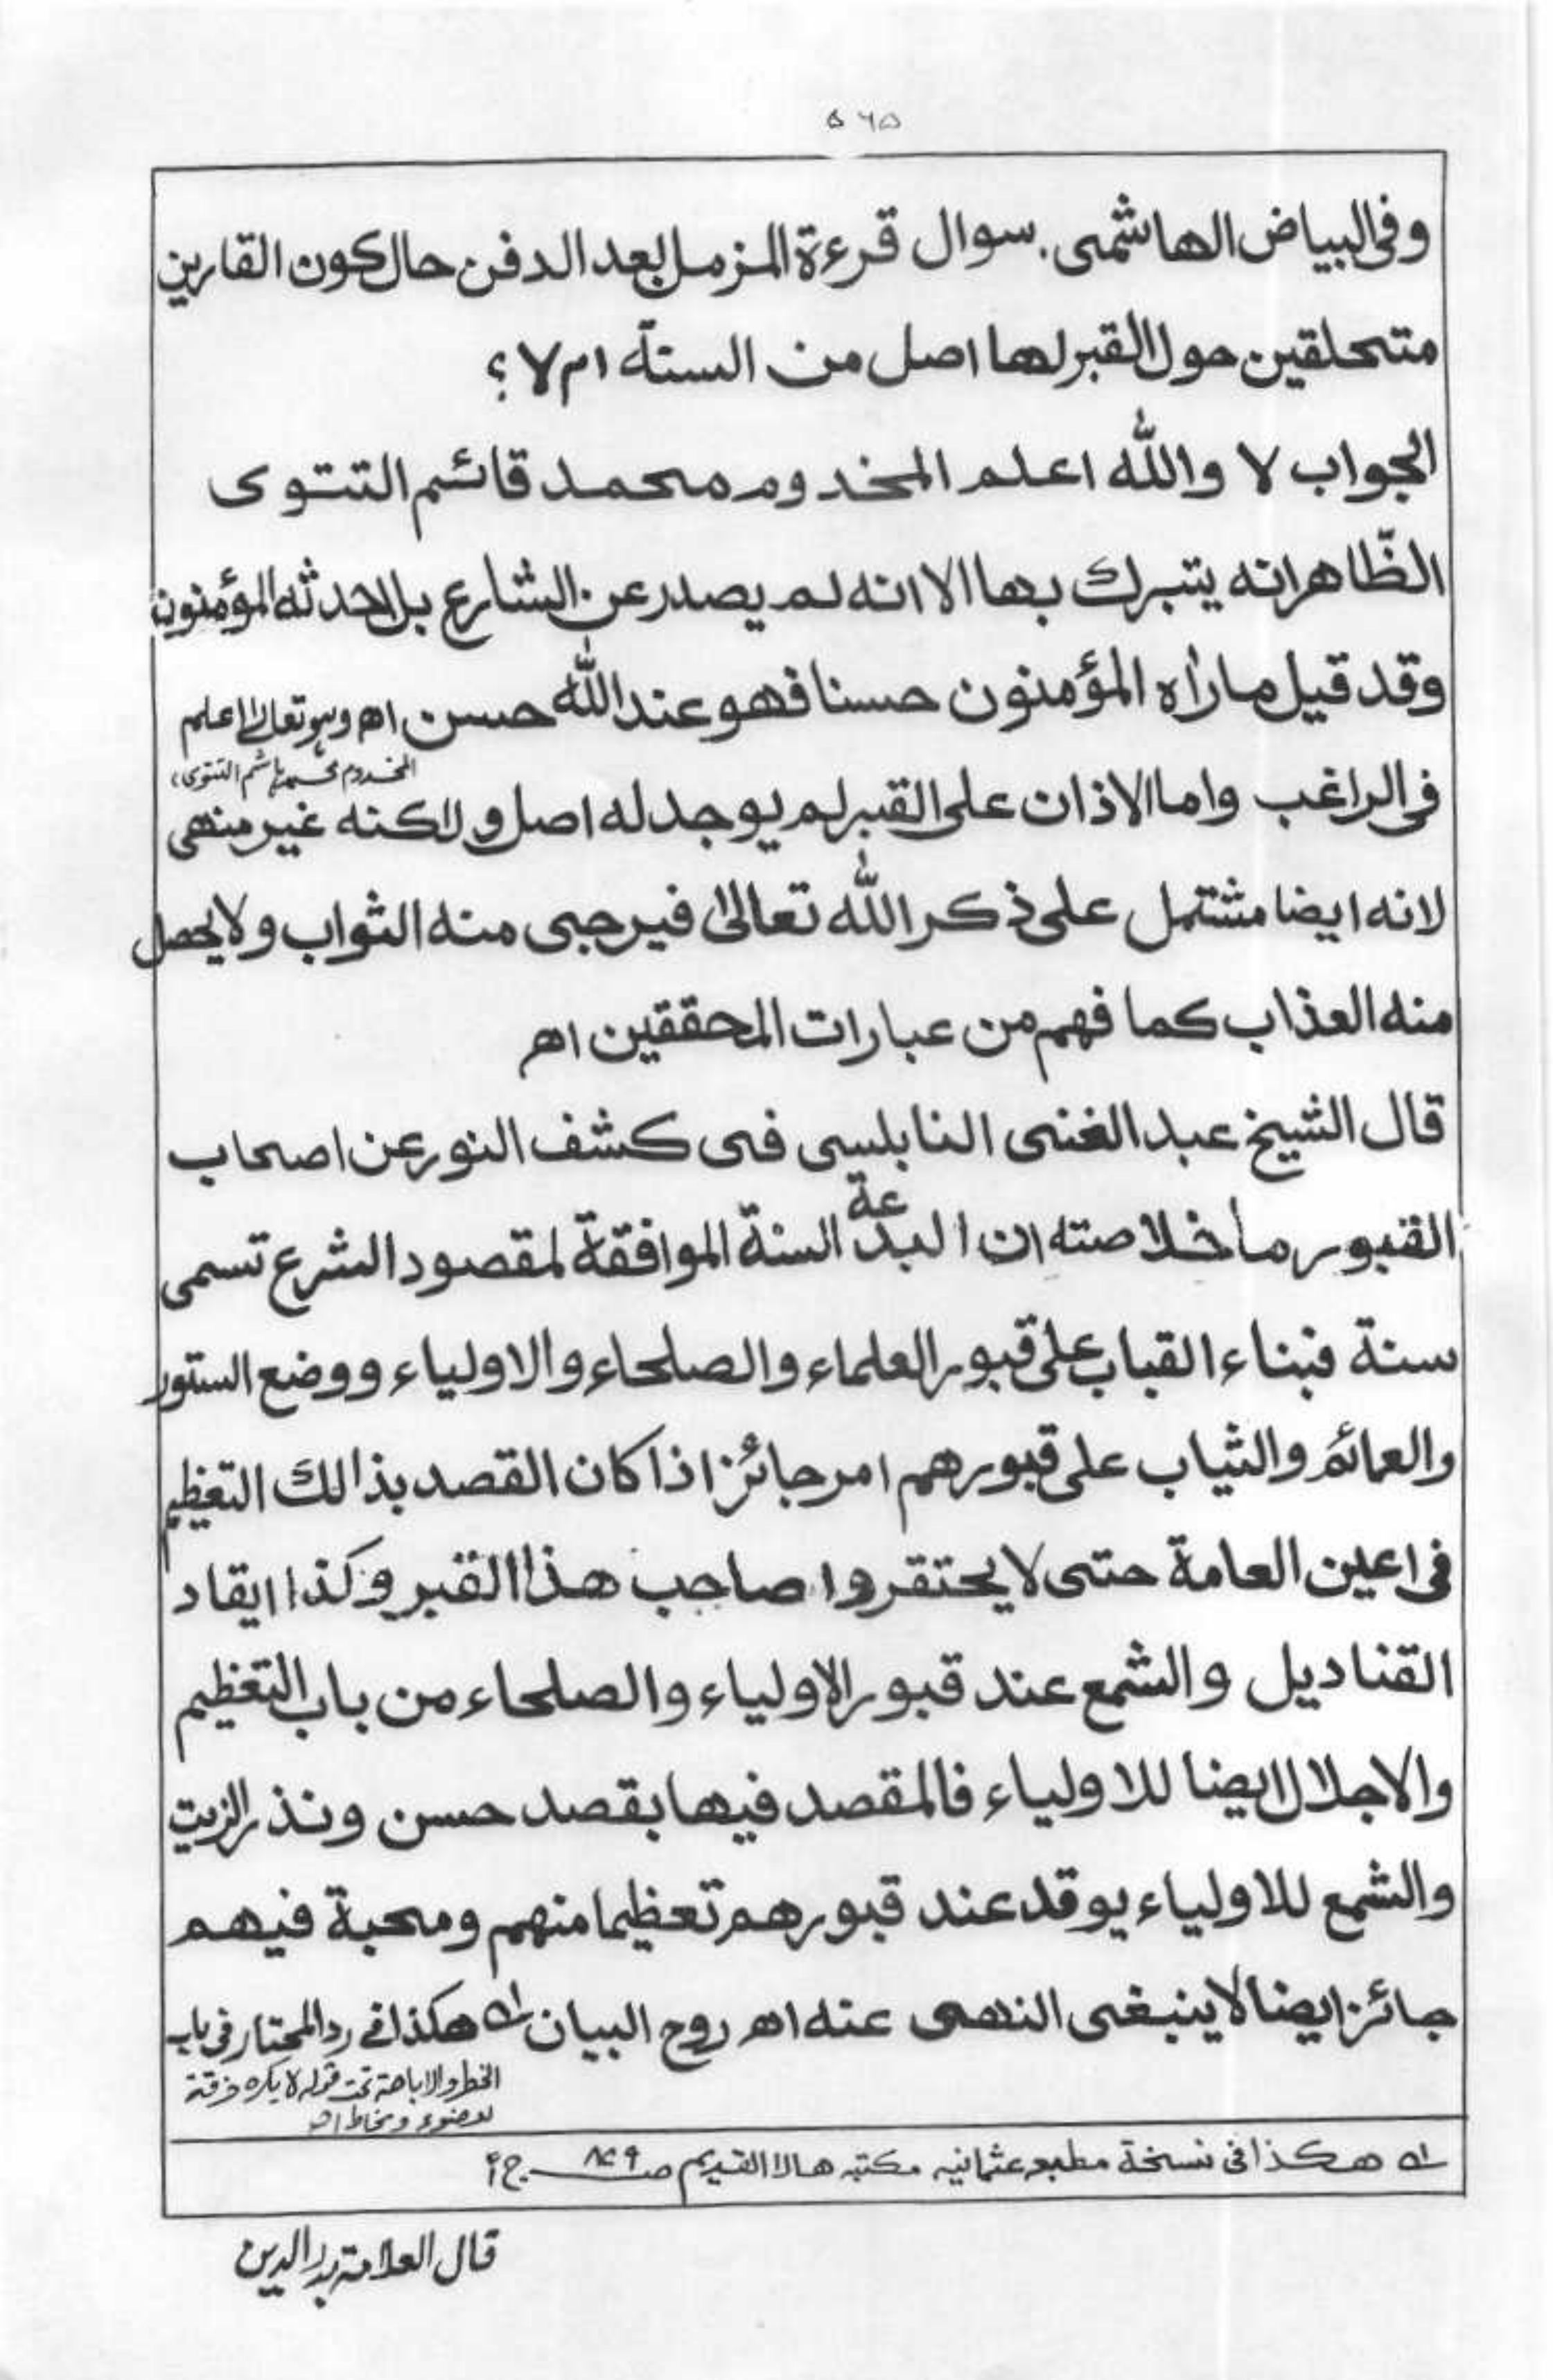 ۵۶۵
وفی البیاض الهاشمی. سوال قرءة المزمل بعد الدفن حال کون القارین
متحلقین حول القبر لها اصل من السنّة ام لا؟
الجواب لا والله اعلم المخدوم محمد قائم التتوی
الظّاهر انه یتبرک بها الا انه لم یصدر عن الشارع بل احدثه المؤمنون
وقد قیل ماراٰه المؤمنون حسنا فهو عند الله حسن اھ وہو تعالیٰ اعلم
المخدوم محمد ہاشم التتوی،
فی الراغب واما الاذان علی القبر لم یوجد له اصل ولاکنه غیر منهی
لانه ایضا مشتمل علی ذکر الله تعالیٰ فیرجی منه الثواب ولا یحصل
منه العذاب کما فهم من عبارات المحققین اھ
قال الشیخ عبد الغنی النابلسی فی کشف النور عن اصحاب
القبور ما خلاصته ان البدعة السنة الموافقة لمقصود الشرع تسمی
سنة فبناء القباب علی قبور العلماء والصلحاء والاولیاء ووضع الستور
والعمائم والثیاب علی قبورهم امر جائز اذا کان القصد بذالک التعظیم
فی اعین العامة حتی لا یحتقروا صاحب هذا القبر وکذا ایقاد
القنادیل والشمع عند قبور الاولیاء والصلحاء من باب التعظیم
والاجلال ایضا للاولیاء فالمقصد فیها بقصد حسن ونذر الزیت
والشمع للاولیاء یوقد عند قبورهم تعظیما منهم ومحبة فیهم
جائز ایضا لا ینبغی النهی عنه اھ روح البیان لہ هکذا فی رد المحتار فی باب
الخطر والاباحة تحت قوله لا یکره خرقة
لوضوء ومخاط اھ
لہ هکذا فی نسخة مطبع عثمانیه مکتبه هالا القدیم صـ ۸۷۹ ج ۲
قال العلامة بدر الدین